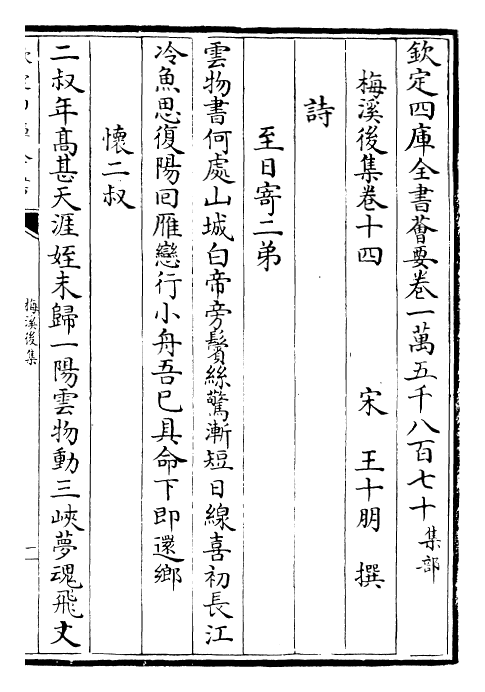 欽定四庫全書薈要卷一萬五千八百七十 集部
梅溪後集卷十四 宋 王十朋 撰
詩
至日寄二弟
雲物書何處山城白帝旁鬢絲驚漸短日線喜初長江
冷魚思復陽回雁戀行小舟吾已具命下即還鄉
懷二叔
二叔年髙甚天涯姪未歸一陽雲物動三峽夢魂飛丈
梅溪後集